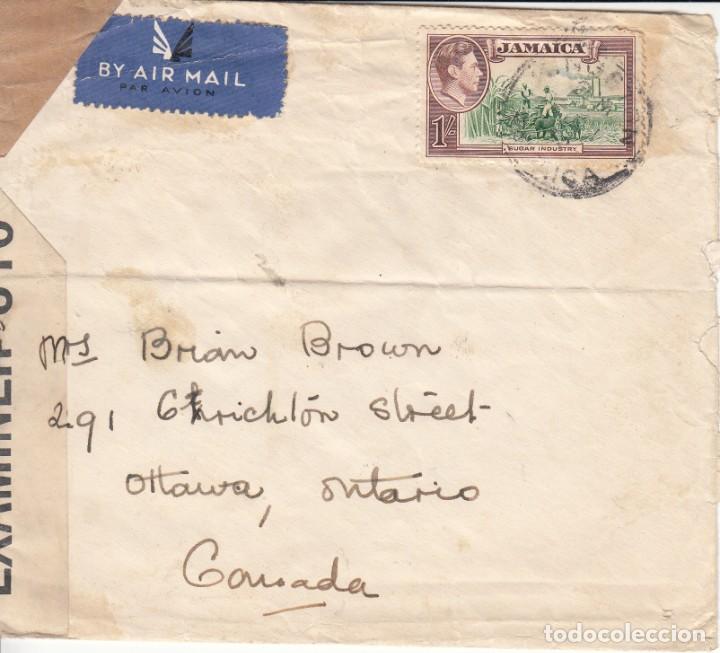 BY AIR MAIL
PAR AVION
JAMAICA
1/-
SUGAR INDUSTRY
Mrs Brian Brown
291 Crichton Street
Ottawa, Ontario
Canada
todocoleccion